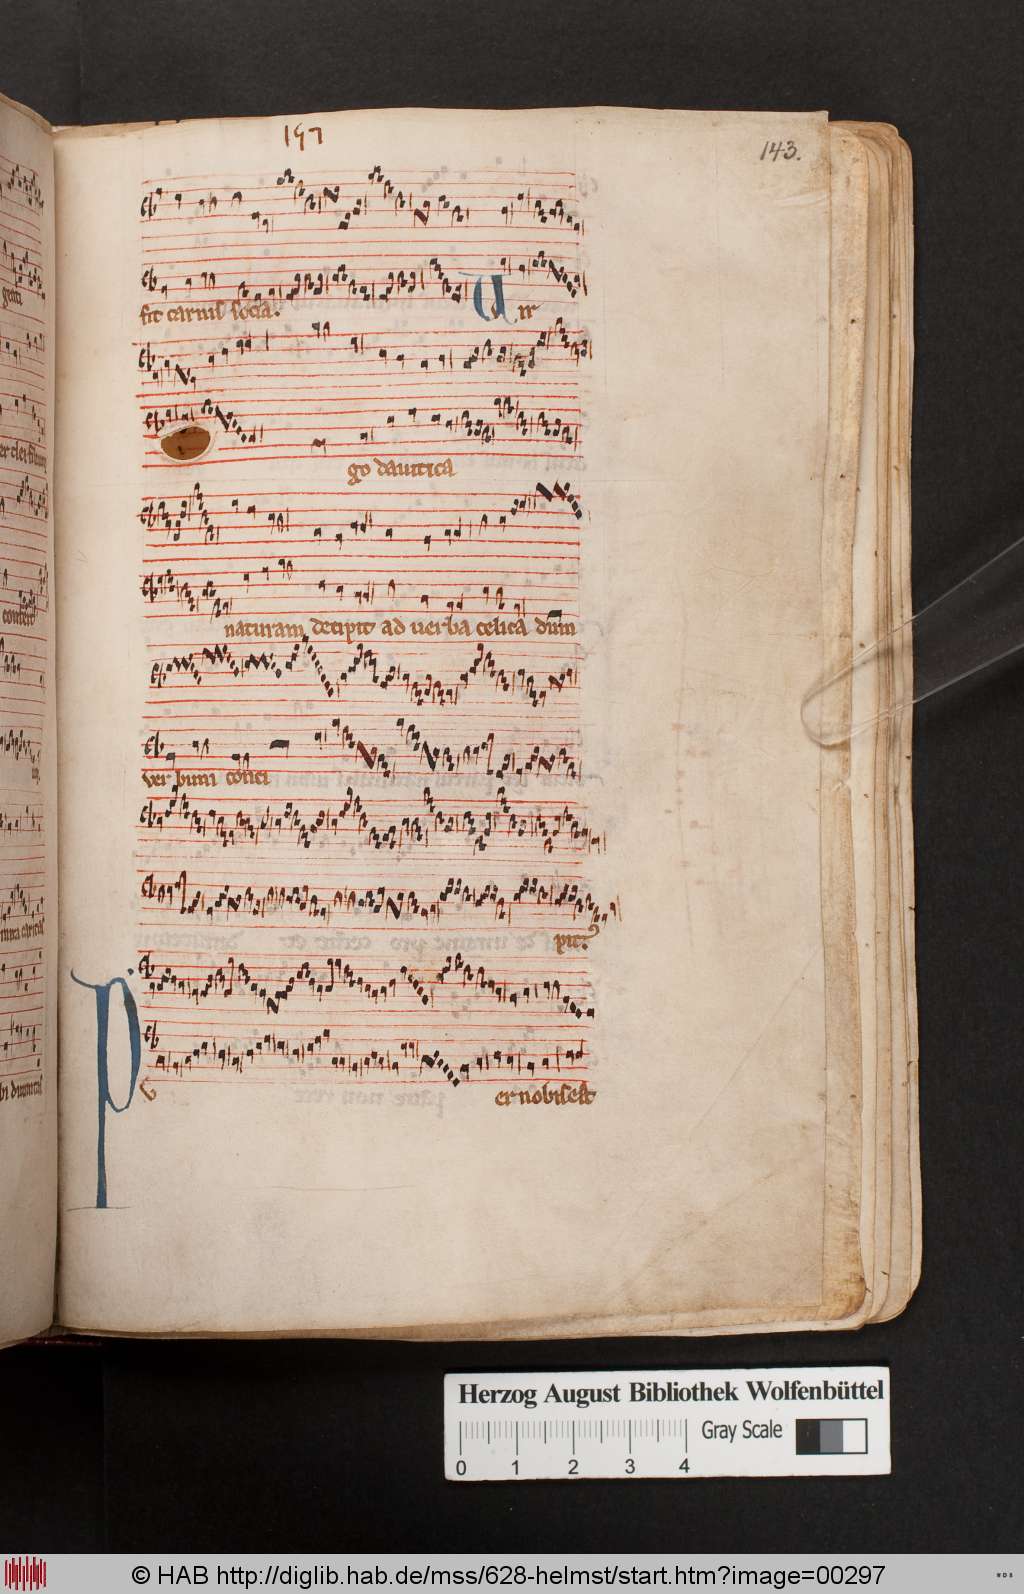 197
143.
fit carnis socia. Uir
go dauitica
naturam decipit ad uerba celica dum
uerbum conci
pit.
P
U er nobis est
geni
conseit
Herzog August Bibliothek Wolfenbüttel
Gray Scale
0 1 2 3 4
© HAB http://diglib.hab.de/mss/628-helmst/start.htm?image=00297